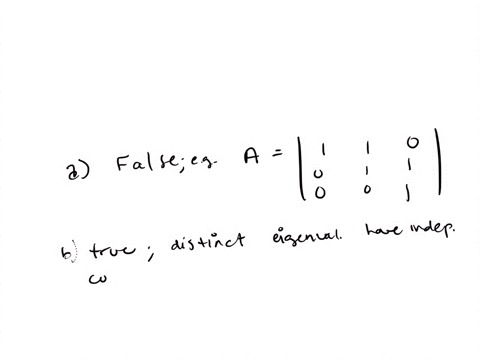 a) False; eg. A = | 1 1 0 |
| 0 1 1 |
| 0 0 1 |
b) true; distinct eigenval. have indep.
co